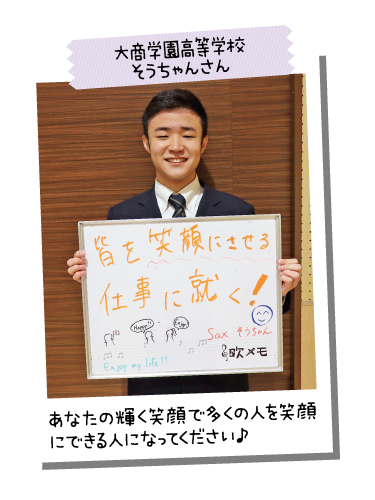 大商学園高等学校
そうちゃんさん
皆を笑顔にさせる
仕事に就く!
Happy!!
Enjoy
Sax そうちゃん
Enjoy my life!!
吹メモ
あなたの輝く笑顔で多くの人を笑顔
にできる人になってください♪